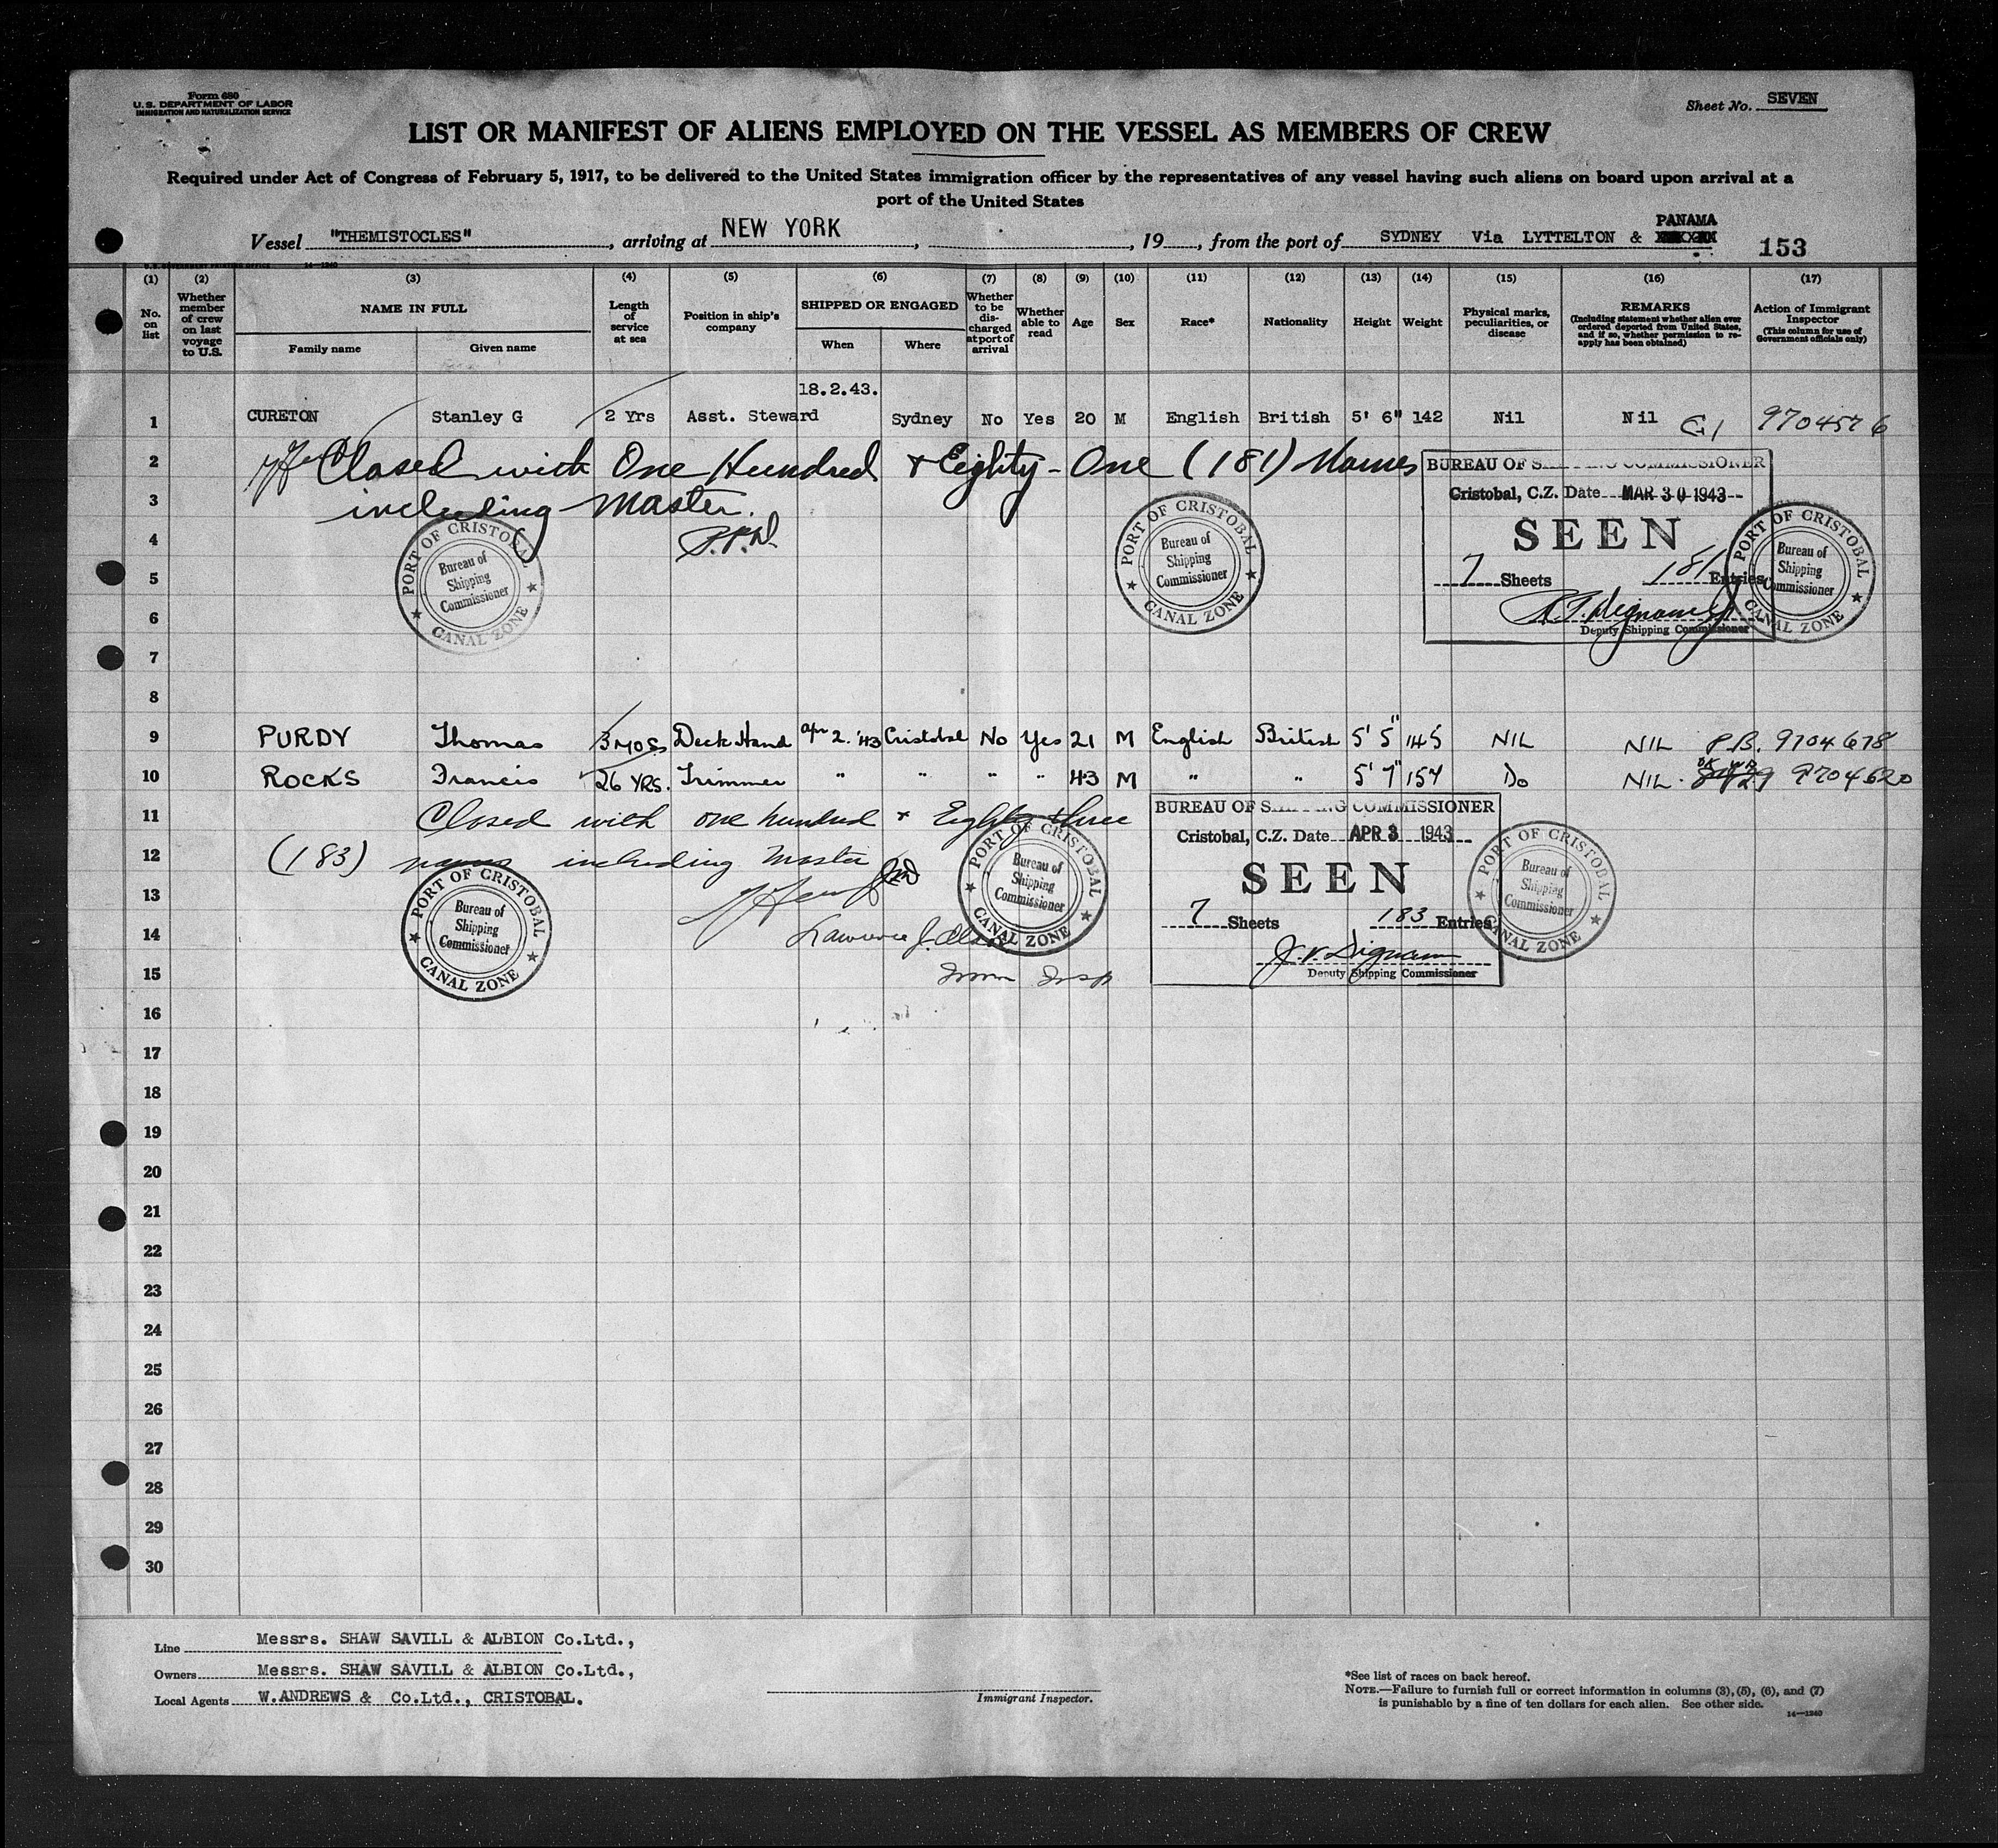 Form 680
U.S. DEPARTMENT OF LABOR
IMMIGRATION AND NATURALIZATION SERVICE
Sheet No. SEVEN
LIST OR MANIFEST OF ALIENS EMPLOYED ON THE VESSEL AS MEMBERS OF CREW
Required under Act of Congress of February 5, 1917, to be delivered to the United States immigration officer by the representatives of any vessel having such aliens on board upon arrival at a
port of the United States
PANAMA
Vessel "THEMISTOCLES", arriving at NEW YORK, , 19 , from the port of SYDNEY Via LYTTELTON & 153
(1) (2) (3) (4) (5) (6) (7) (8) (9) (10) (11) (12) (13) (14) (15) (16) (17)
No. on list
Whether member of crew on last voyage to U.S.
NAME IN FULL
Family name Given name
Length of service at sea
Position in ship's company
SHIPPED OR ENGAGED
When Where
Whether to be discharged at port of arrival
Whether able to read
Age
Sex
Race*
Nationality
Height
Weight
Physical marks, peculiarities, or disease
REMARKS
(Including statement whether alien ever ordered deported from United States, and if so, whether permission to re-apply has been obtained)
Action of Immigrant Inspector
(This column for use of Government officials only)
18.2.43.
1 CURETON Stanley G 2 Yrs Asst. Steward Sydney No Yes 20 M English British 5' 6" 142 Nil Nil G1 9704576
2 Closed with One Hundred & Eighty-One (181) Names
3 including Master.
4
5
6
7
8
BUREAU OF SHIPPING COMMISSIONER
Cristobal, C.Z. Date MAR 30 1943
SEEN
7 Sheets 181 Entries
Deputy Shipping Commissioner
PORT OF CRISTOBAL
Bureau of
Shipping
Commissioner
CANAL ZONE
PORT OF CRISTOBAL
Bureau of
Shipping
Commissioner
CANAL ZONE
PORT OF CRISTOBAL
Bureau of
Shipping
Commissioner
CANAL ZONE
9 PURDY Thomas 3 MOS. Deck Hand Apr 2. '43 Cristobal No Yes 21 M English British 5' 5" 145 NIL NIL P.B. 9704678
10 ROCKS Francis 26 YRS. Trimmer " " " " 43 M " " 5' 7" 157 Do NIL. 9704620
11 Closed with one hundred & Eighty three
12 (183) names including Master
13
14 Lawrence J.
15 Imm Insp
BUREAU OF SHIPPING COMMISSIONER
Cristobal, C.Z. Date APR 3 1943
SEEN
7 Sheets 183 Entries
J. V. Dignam
Deputy Shipping Commissioner
PORT OF CRISTOBAL
Bureau of
Shipping
Commissioner
CANAL ZONE
PORT OF CRISTOBAL
Bureau of
Shipping
Commissioner
CANAL ZONE
PORT OF CRISTOBAL
Bureau of
Shipping
Commissioner
CANAL ZONE
16
17
18
19
20
21
22
23
24
25
26
27
28
29
30
Line Messrs. SHAW SAVILL & ALBION Co.Ltd.,
Owners Messrs. SHAW SAVILL & ALBION Co.Ltd.,
Local Agents W.ANDREWS & Co.Ltd., CRISTOBAL.
Immigrant Inspector.
*See list of races on back hereof.
NOTE.—Failure to furnish full or correct information in columns (3), (5), (6), and (7)
is punishable by a fine of ten dollars for each alien. See other side.
14—1240